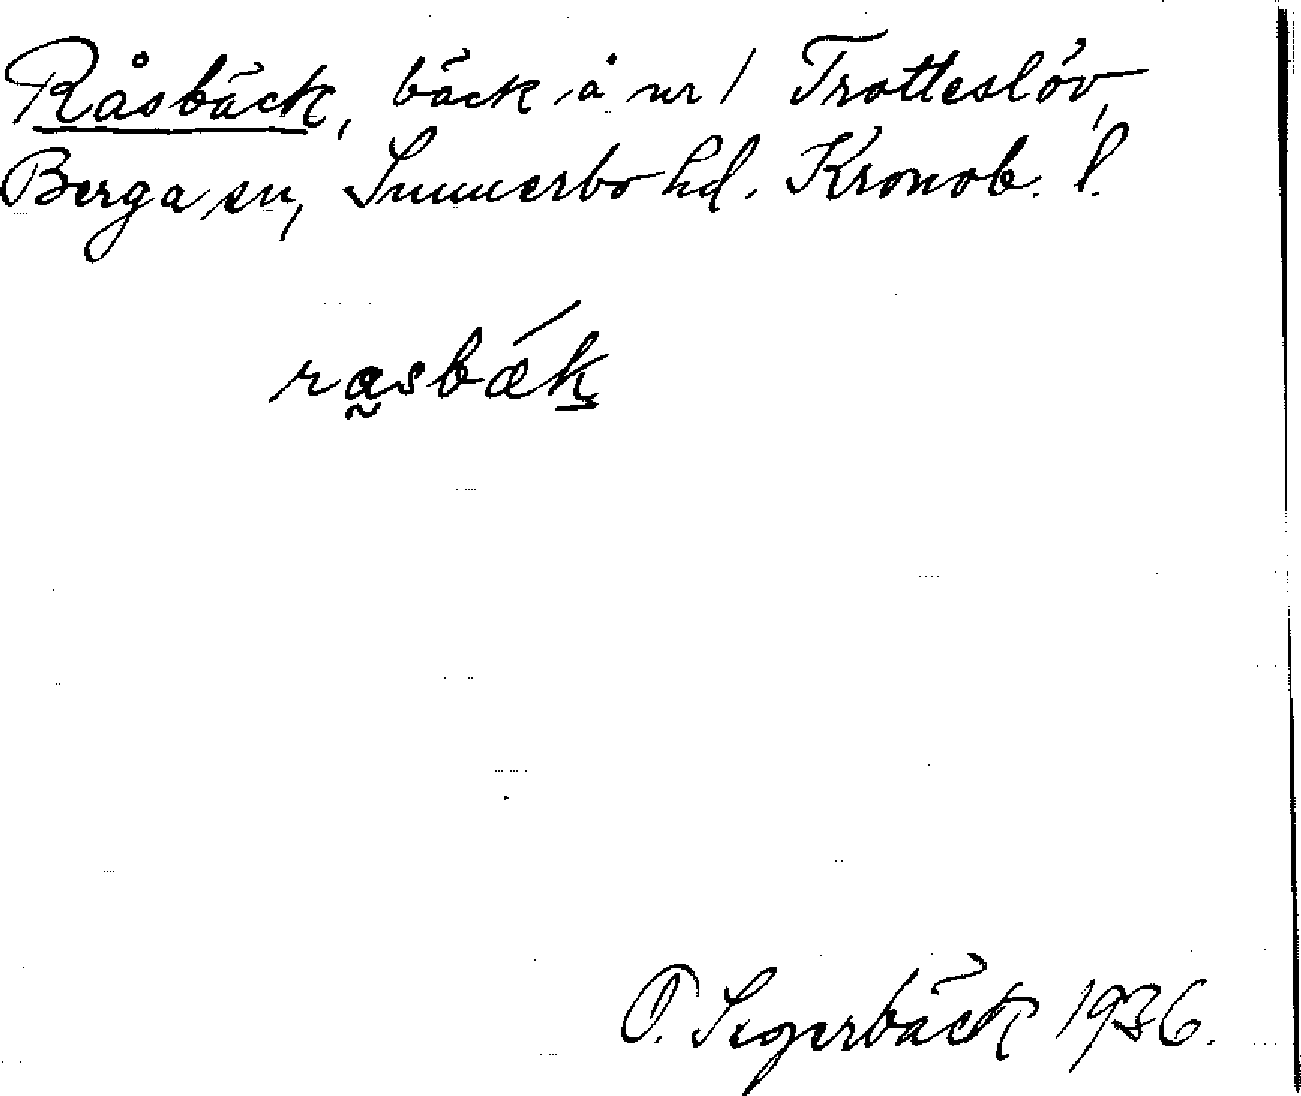 Råsbäck, bäck å nr 1 Trotteslöv,
Berga sn, Sunnerbo hd. Kronob. l.
råsbǽk
P. Segerbäck 1936.